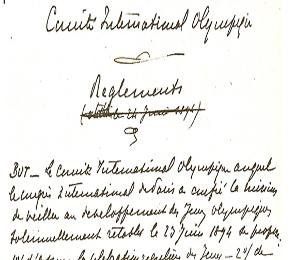 Comité International Olympique
Réglements
(établi le 24 Juin 1894)
BUT — Le Comité International Olympique auquel
le congrès International de Paris a confié la mission
de veiller au développement des Jeux Olympiques
solennellement rétablis le 23 Juin 1894 se propose
la célébration régulière des Jeux — 2º/ de